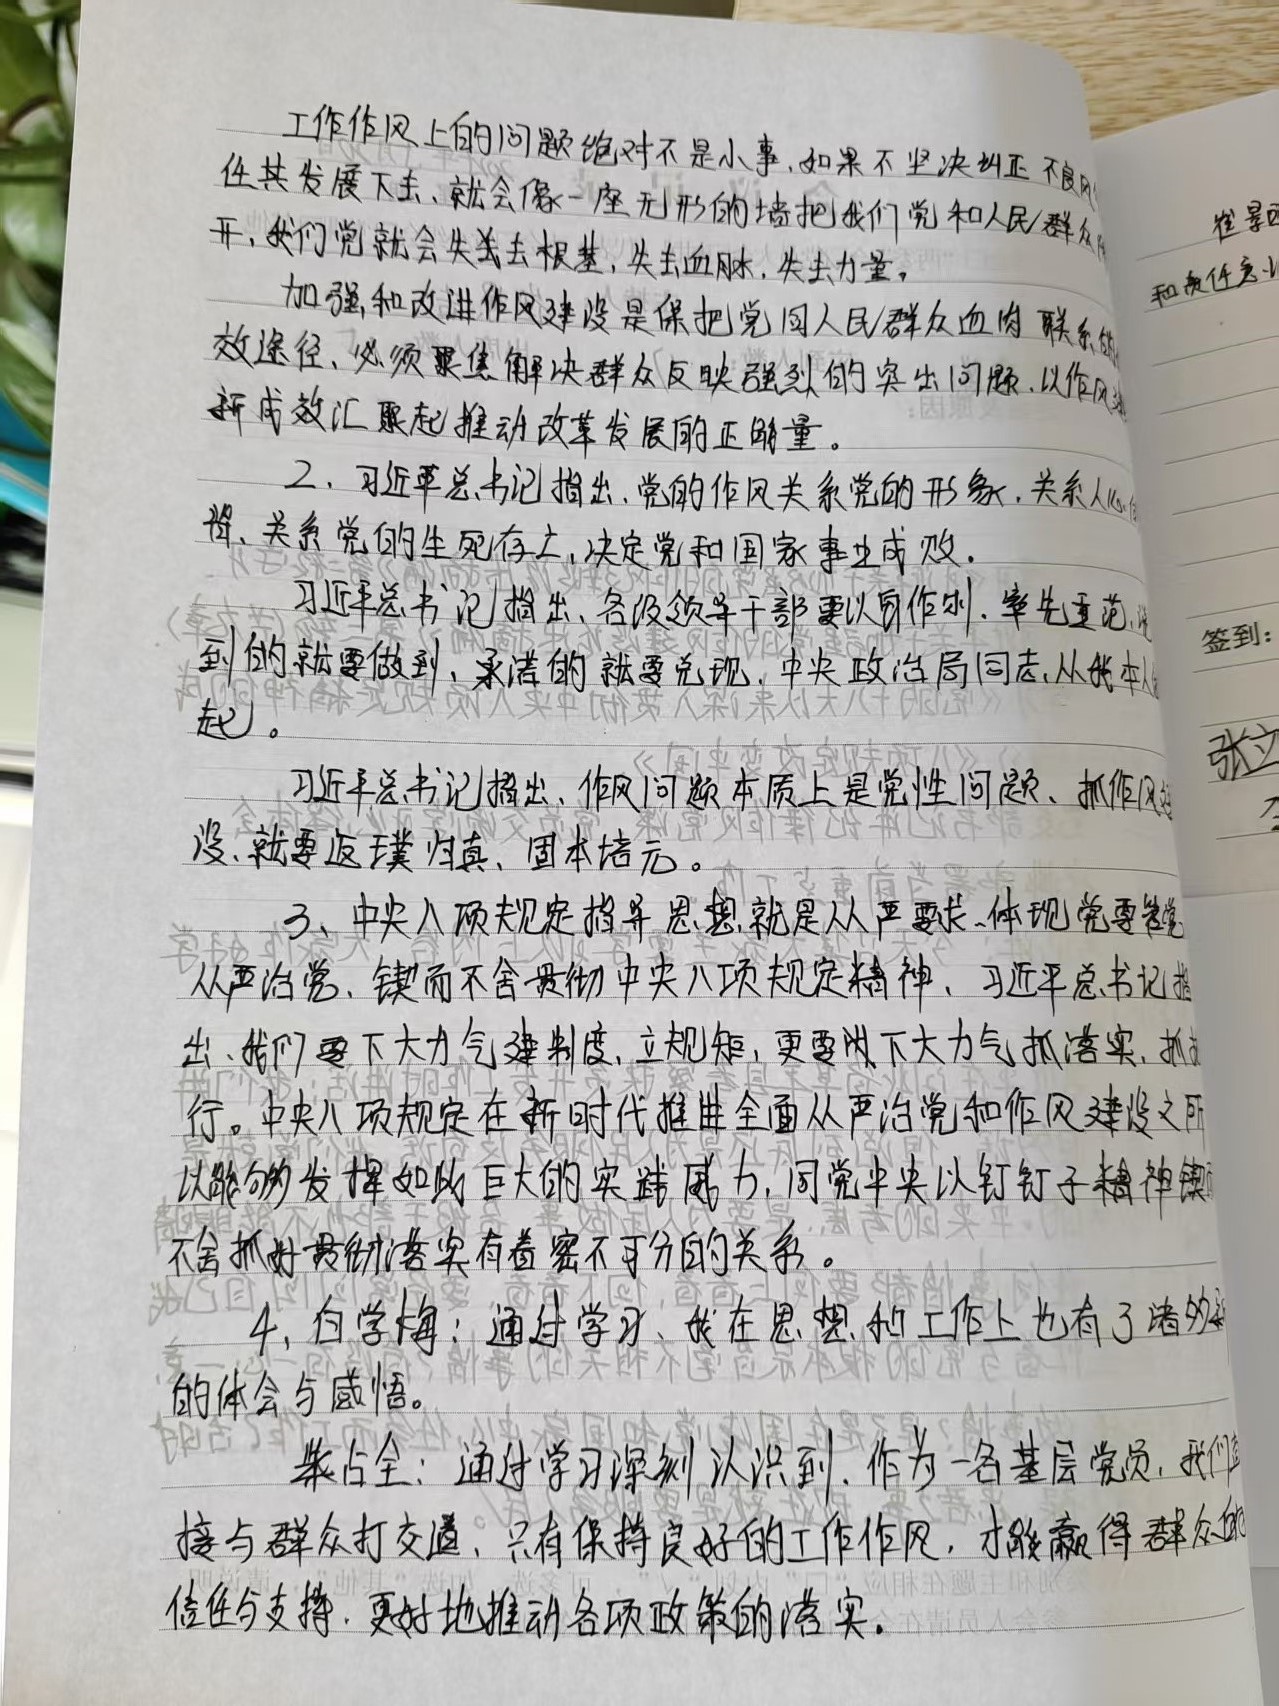 工作作风上的问题绝对不是小事,如果不坚决纠正不良风
任其发展下去、就会像一座无形的墙把我们党和人民群众
开,我们党就会失去根基,失去血脉,失去力量。
加强和改进作风建设是保把党同人民群众血肉联系的
效途径、必须聚焦解决群众反映强烈的突出问题,以作风
新成效汇聚起推动改革发展的正能量。
2、习近平总书记指出、党的作风关系党的形象,关系人心
背、关系党的生死存亡,决定党和国家事业成败。
习近平总书记指出、各级领导干部要以身作则、率先垂范、说
到的就要做到,承诺的就要兑现,中央政治局同志从我本人
起。
习近平总书记指出、作风问题本质上是党性问题、抓作风建
设、就要返璞归真、固本培元。
3、中央八项规定指导思想就是从严要求、体现党要管党
从严治党、锲而不舍贯彻中央八项规定精神、习近平总书记指
出、我们要下大力气建制度、立规矩,更要下大力气抓落实、抓
行。中央八项规定在新时代推进全面从严治党和作风建设之所
以能够发挥如此巨大的实践威力,同党中央以钉钉子精神锲
不舍抓好贯彻落实有着密不可分的关系。
4、白学梅:通过学习、我在思想和工作上也有了诸多新
的体会与感悟。
柴占全:通过学习深刻认识到、作为一名基层党员,我们直
接与群众打交道、只有保持良好的工作作风,才能赢得群众的
信任与支持、更好地推动各项政策的落实。
崔景
和责任意
签到:
张立